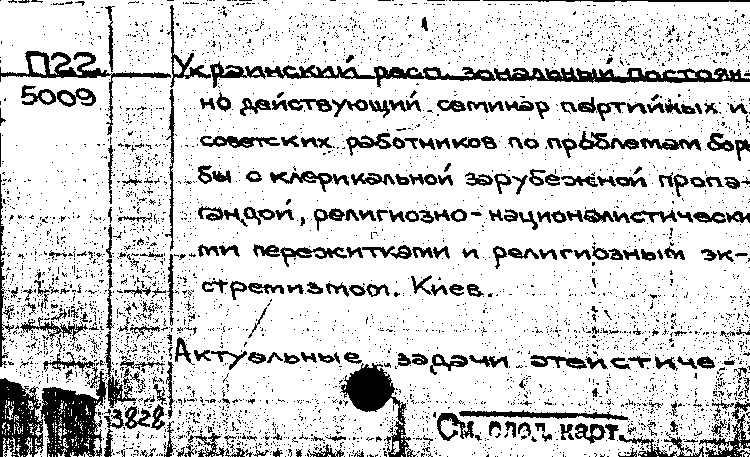 П22
5009
Украинский респ. зональный постоян-
но действующий семинар партийных и
советских работников по проблемам борь
бы с клерикальной зарубежной пропа-
гандой, религиозно-националистически
ми пережитками и религиозным эк-
стремизмом. Киев.
Актуальные задачи атеистиче-
3828
См. след. карт.